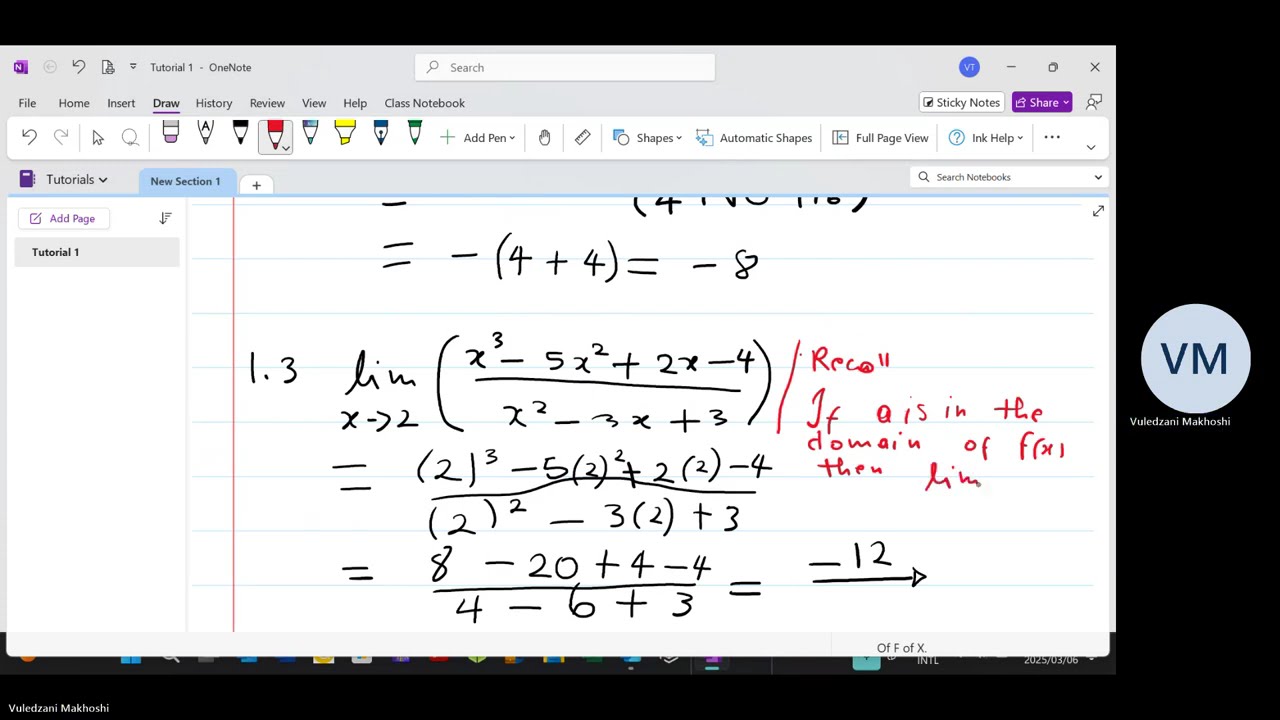 Tutorial 1 - OneNote
Search
VT
File Home Insert Draw History Review View Help Class Notebook
Sticky Notes
Share
Add Pen
Shapes
Automatic Shapes
Full Page View
Ink Help
Tutorials
New Section 1
Search Notebooks
Add Page
Tutorial 1
= - (4 + 4) = - 8
1.3 lim x→2 ( x³ - 5x² + 2x - 4 / x² - 3x + 3 )
Recall
If a is in the
domain of f(x)
then lim
= (2)³ - 5(2)² + 2(2) - 4 / (2)² - 3(2) + 3
= 8 - 20 + 4 - 4 / 4 - 6 + 3 = -12
Of F of X.
INTL
2025/03/06
VM
Vuledzani Makhoshi
Vuledzani Makhoshi